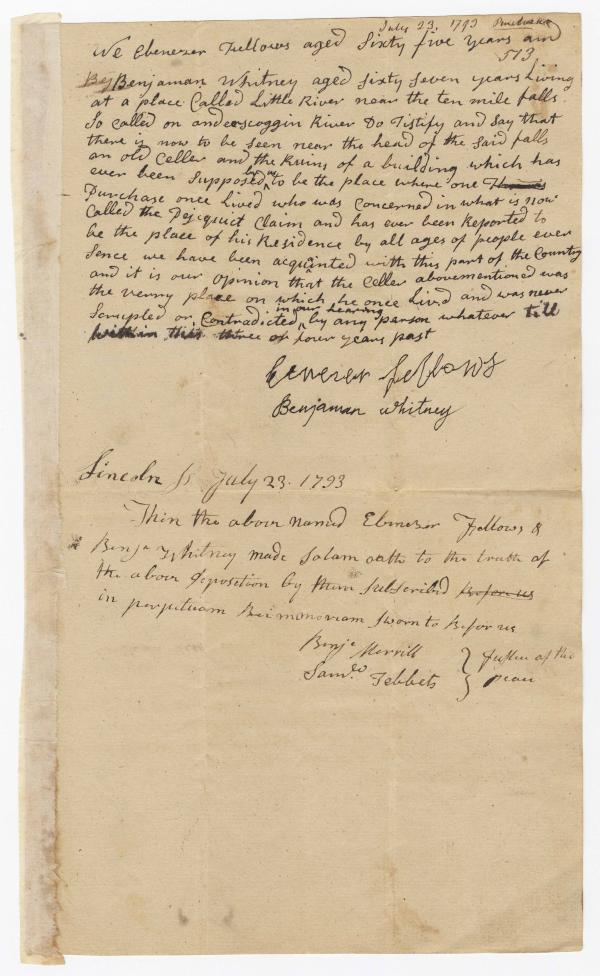 July 23. 1793
We Ebenezer Fellows aged Sixty five years and
513
Benjaman Whitney aged sixty seven years Living
at a place Called Little River near the ten mile falls
So called on andescoggin River Do Tistify and say that
there is now to be seen near the head of the said falls
an old Celler and the Ruins of a building which has
ever been Supposed by us to be the place where one Thomas
Purchase once Lived who was Concerned in what is now
Called the Pejcquict Claim and has ever been Reported to
be the place of his Residence by all ages of people ever
Sence we have been acquinted with this part of the Country
and it is our opinion that the Celler abovementioned was
the verry place on which he once Lived and was never
Scrupled or Contradicted in our hearing by any person whatever till
within this three or four years past
Ebenezer Fellows
Benjaman Whitney
Lincoln ss July 23. 1793
Then the above named Ebenezer Fellows &
Benja Whitney made Solam oath to the truth of
the above Deposition by them Subscribed before us
in perpetuam Rei memoriam Sworn to Befor us
Benja Merrill
Saml Tebbets
} Justices of the
peace